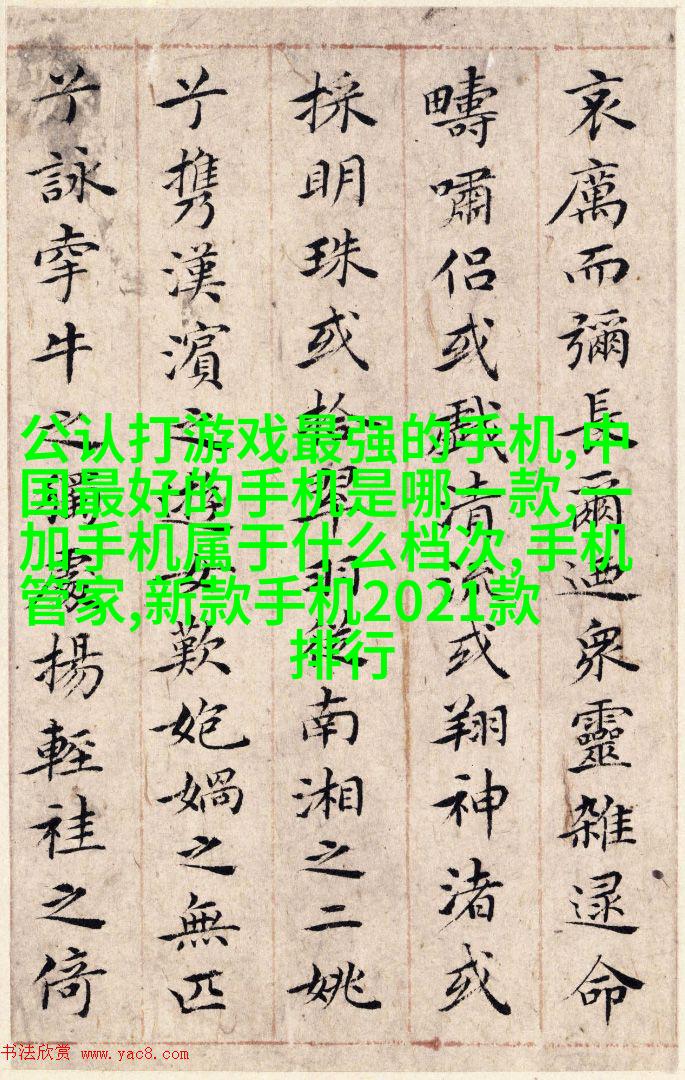 哀厲而彌長爾迺衆靈雜遝命
疇嘯侶或戲清流或翔神渚或
採明珠或拾翠羽從南湘之二姚
兮攜漢濱之遊女歎媧之無匹
兮詠牽牛之獨處揚輕袿之倚
公认打游戏最强的手机,中
国最好的手机是哪一款,一
加手机属于什么档次,手机
管家,新款手机2021款
排行
书法欣赏 www.yac8.com